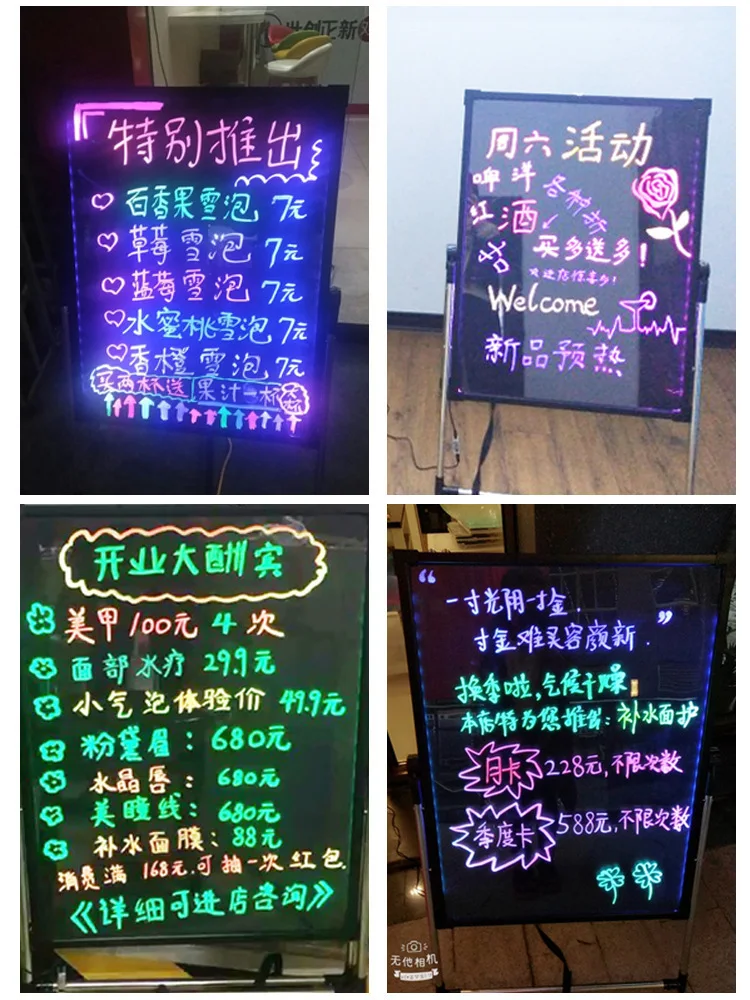 特别推出
百香果雪泡 7元
草莓雪泡 7元
蓝莓雪泡 7元
水蜜桃雪泡 7元
香橙雪泡 7元
买两杯送 果汁一杯
周六活动
啤 洋
红 酒
各种
买多送多!
Welcome
新品预热
开业大酬宾
美甲100元 4次
面部水疗 29.9元
小气泡体验价 49.9元
粉黛眉: 680元
水晶唇: 680元
美瞳线: 680元
补水面膜: 88元
消费满 168元.可抽一次红包.
《详细可进店咨询》
“一寸光阴一寸金.
寸金难买容颜新.”
换季啦,气候干燥
本店特为您推出: 补水面护
月卡 228元,不限次数
季度卡 588元,不限次数
无他相机